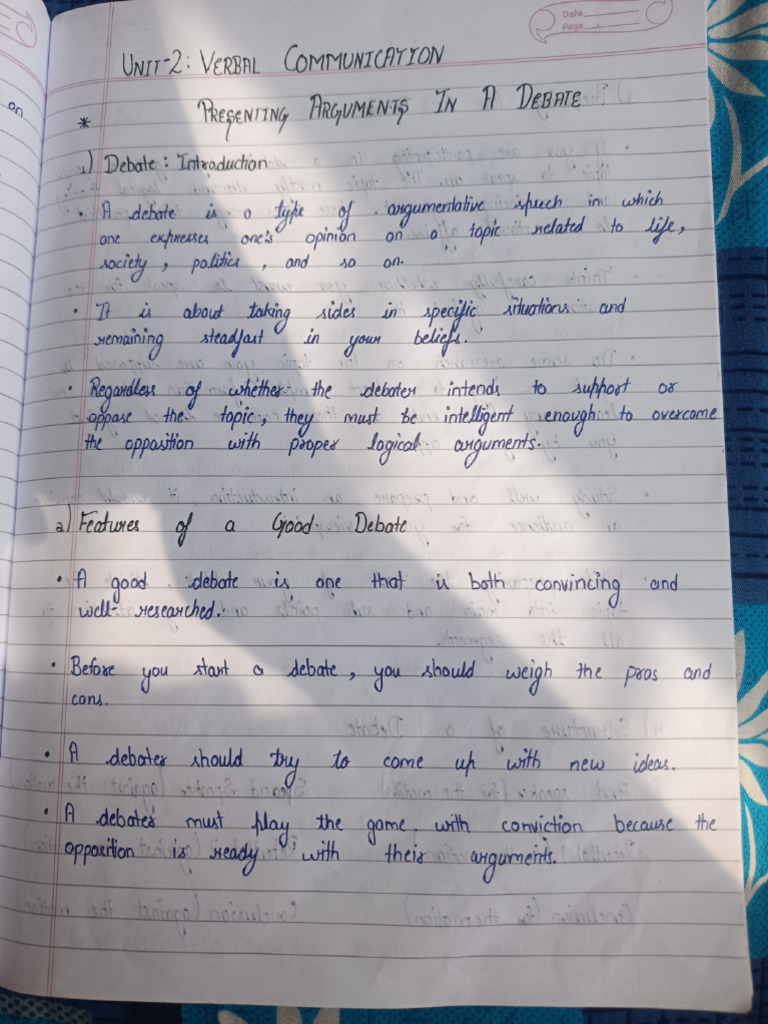 Date
Page
on
UNIT-2: VERBAL COMMUNICATION
* PRESENTING ARGUMENTS IN A DEBATE
1) Debate : Introduction
• A debate is a type of argumentative speech in which
one expresses one's opinion on a topic related to life,
society, politics, and so on.
• It is about taking sides in specific situations and
remaining steadfast in your beliefs.
• Regardless of whether the debater intends to support or
oppose the topic, they must be intelligent enough to overcome
the opposition with proper logical arguments.
2) Features of a Good Debate
• A good debate is one that is both convincing and
well-researched.
• Before you start a debate, you should weigh the pros and
cons.
• A debater should try to come up with new ideas.
• A debater must play the game with conviction because the
opposition is ready with their arguments.